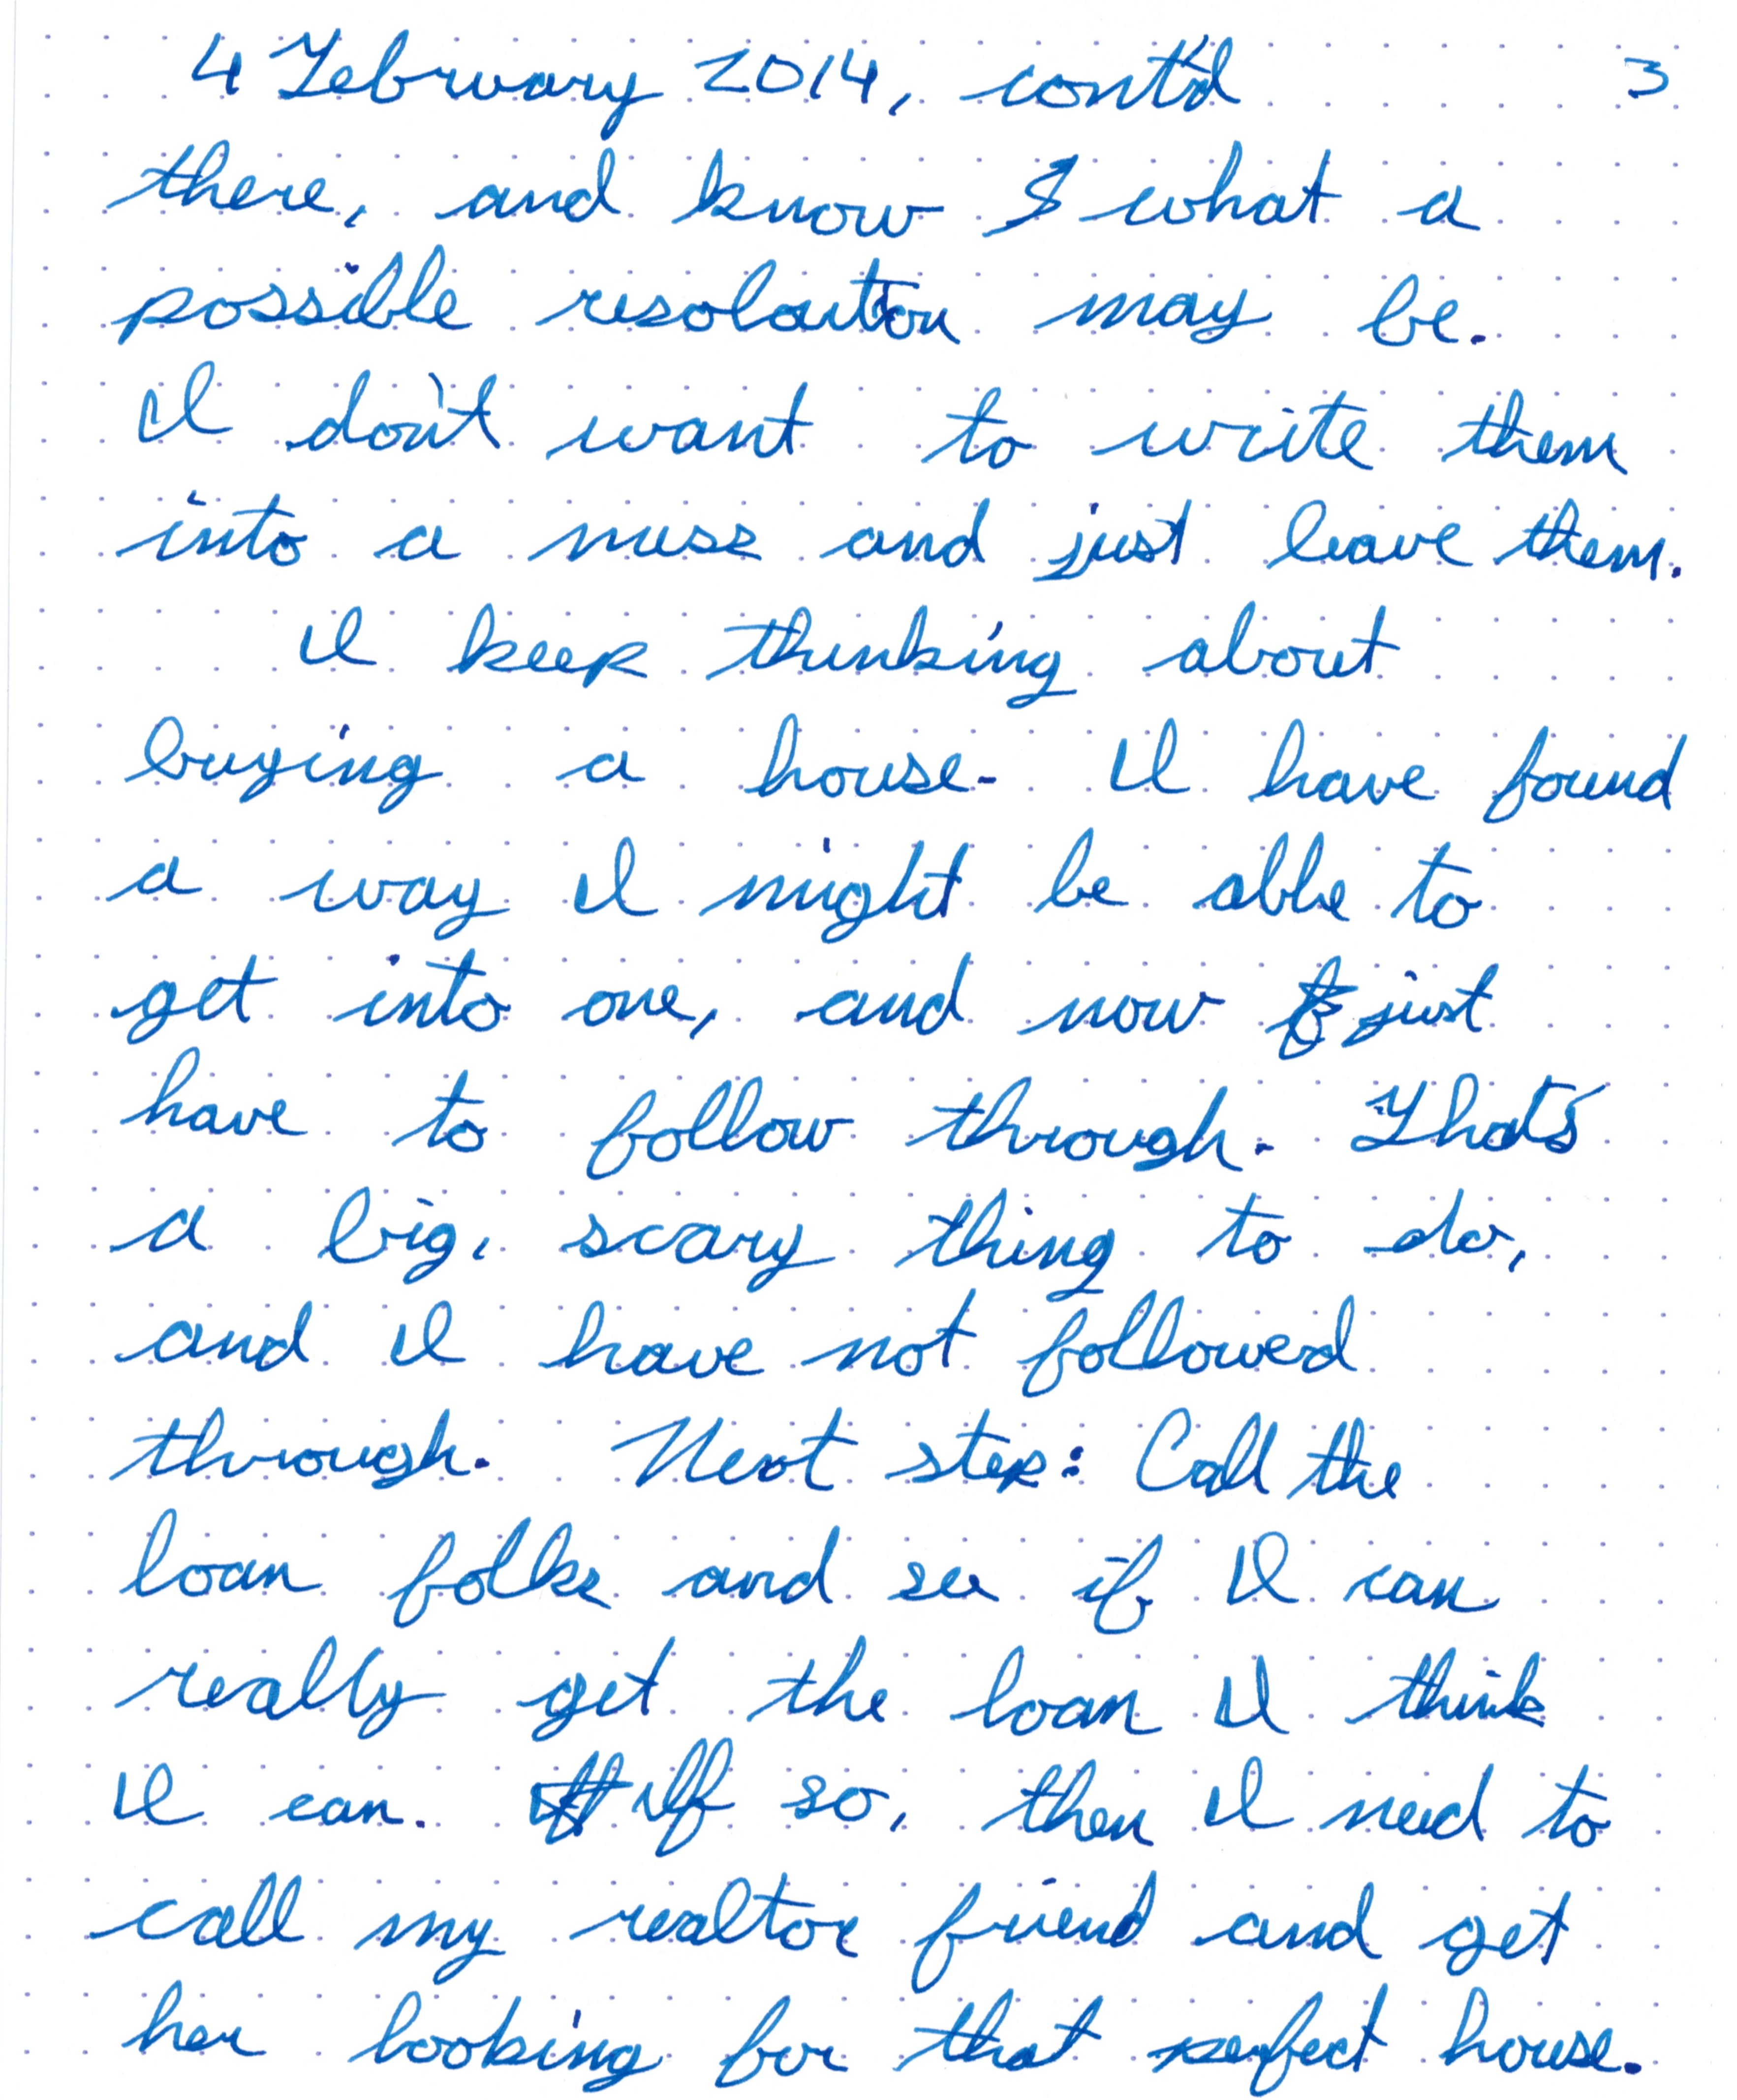 4 February 2014, cont'd 3
there, and know I what a
possible resolaution may be.
I don't want to write them
into a mess and just leave them.
I keep thinking about
buying a house. I have found
a way I might be able to
get into one, and now I just
have to follow through. That's
a big, scary thing to do,
and I have not followed
through. Next step: Call the
loan folks and see if I can
really get the loan I think
I can. If so, then I need to
call my realtor friend and get
her looking for that perfect house.